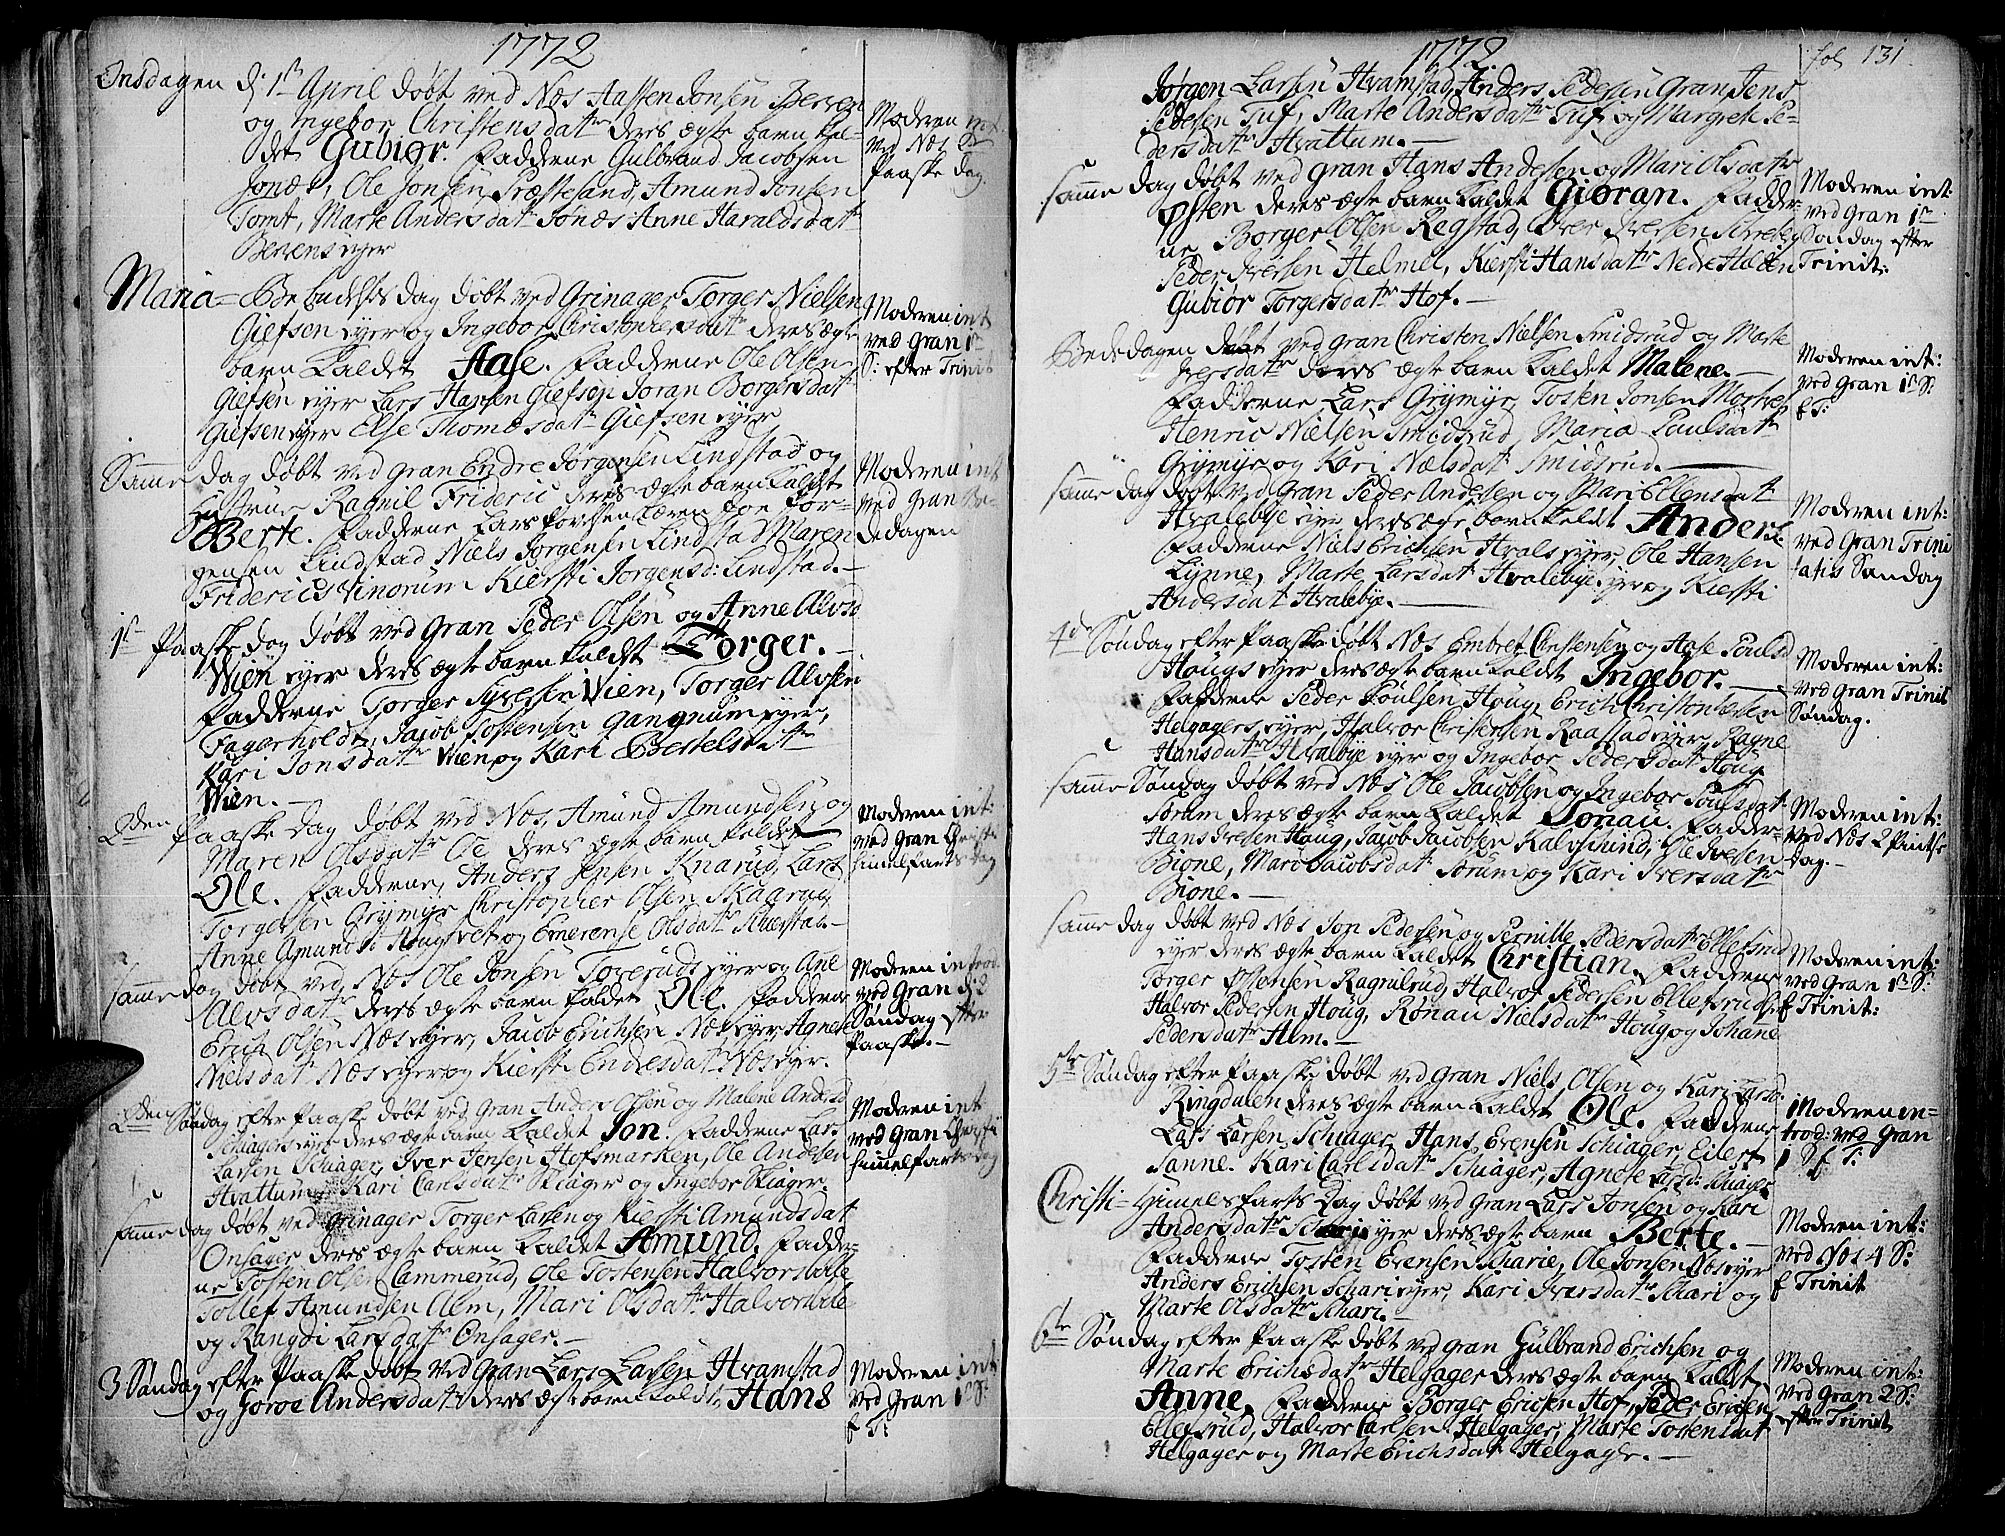 1772
Onsdagen d: 1st April døbt ved Næs Aassen Jonsen Bergen
og Ingebor Christensdatr deres ægte barn kal-
det Gubiør. Fadderne Gulbrand Jacobsen
Jonæs, Ole Jonsen Præstesand, Amund Jonsen
Tomt, Marte Andersdatr Jonæs Anne Haraldsdatr
eyer
Moderen int.
ved Næs
Paaske Dag.
Maria = Bebudelses dag døbt ved Grinager Torger Nielsen
Giefsen eyer og Ingebor Christophersdatr deres ægte
barn kaldet Aase. Fadderne Ole Olsen
Giefsen eyer Lars Hansen Giefsen Joran Borgersdatr
Giefsen eyer Else Thomesdatr Giefsen eyer
Moderen int
ved Gran 1st
S: efter Trinit
Samme dag døbt ved Gran Endre Jørgensen Lindstad og
Hustrue Ragnil Frideric deres ægte barn kaldet
Berte. Fadderne Lars Povelsen Jør-
gensen Lindstad Niels Jørgensen Lindstad Maren
Friderics Vinorum Kiersti Jørgensd: Lindstad.—
Moderen int
ved Gran Be-
dedagen
1st Paaskedag døbt ved Gran Peder Olsen og Anne Alvsd
Wien eyer deres ægte barn kaldet Torger.—
Fadderne Torger Syversen Wien, Torger Alvsen
Fagerholdt, Jacob Tostensen Gangnum eyer,
Kari Jonsdatr Wien og Kari Bertelsdatr
Wien.—
2den Paaske Dag døbt ved Næs, Amund Amundsen og
Maren Olsdatr Oe deres ægte barn kaldet
Ole. Fadderne, Anders Jensen Knarud, Lars
Torgersen Grymyr Christopher Olsen Skaarud,
Anne Amundsd Hougsvet og Emerense Olsdatr
Moderen int:
ved Gran Christi
himelfarts Dag
samme dag døbt ved Næs Ole Jonsen Torerud eyer og Ane
Alvsdatr deres ægte barn kaldet Ole. Fadderne
Erich Olsen Næs eyer, Jacob Erichsen Næs eyer Agnete
Nielsdatr Næs eyer og Kiersti Endresdatr Næs eyer.
Moderen introd.
ved Gran d: 2
Søndag efter
Paaske.—
2den Søndag efter Paaske døbt ved Gran Anders Olsen og Malene Andersd
Schiagers eyer deres ægte barn kaldet Jon. Fadderne Lars
Larsen Schiager, Iver Jensen Hofsmarken, Ole Andersen
Hvattum, Kari Carlsdatr Skiager og Ingebor Skiager.
Moderen int
ved Gran Christi
himelfarts dag
samme dag døbt ved Grinager Torger Larsen og Kiersti Amundsdat
Onsager deres ægte barn kaldet Amund. Fadder-
ne Tosten Olsen Cammerud, Ole Tostensen Halvorsbøle
Tollef Amundsen Alm, Mari Olsdatr Halvorsbøle
og Rangdi Larsdatr Onsager.—
3 Søndag efter Paaske døbt ved Gran Lars Larsen Hvamstad
og Goroe Andersdatr deres ægte barn kaldt, Hans
Moderen int
ved Gran 1st S:
f T:
1772.
fol 131.
Jørgen Larsen Hvamstad, Anders Pedersen Gran, Jens
Pedersen Tuf, Marte Andersdatr Tuf og Margrete Pe-
dersdatr Hvattum.—
samme dag døbt ved Gran Hans Andersen og Mari Olsdatr
Østen deres ægte barn kaldet Giøran. Fadder-
ne Borger Olsen Regstad, Iver Iversen
Peder Iversen Helmei, Kiersti Hansdatr Nedre Helden
Gubiør Torgersdatr Hof.—
Moderen int:
ved Gran 1st
Søndag efter
Trinit:
Bededagen døbt ved Gran Christen Nielsen Smidsrud og Marte
Iversdatr deres ægte barn kaldet Malene.—
Fadderne Lars Grymyr, Tosten Jonsen
Henric Nielsen Smidsrud, Maria Paulsdatr
Grymyr og Kari Nielsdatr Smidsrud.—
Moderen int:
ved Gran 1st S:
f T:
samme dag døbt ved Gran Peder Andersen og Mari Ellensdatr
Hvalebye eyer deres ægte barn kaldet Anders.
Fadderne Niels Erichsen Hvals eyer, Ole Hansen
Lynne, Marte Larsdatr Hvalebye eyer og Kiersti
Andersdatr Hvalebye.—
Moderen int:
ved Gran Trini
tatis Søndag
4de Søndag efter Paaske døbt Næs Embret Christensen og Aase Poulsd
Hougs eyer deres ægte barn kaldet Ingebor.—
Fadderne Peder Poulsen Houg, Erich Christophersen
Helgagers eyer, Halvor Christensen Raastad eyer, Ragne
Hansdatr Hvalebye eyer og Ingebor Pedersdatr Houg
Moderen int:
ved Gran Trinit
Søndag.
samme Søndag døbt ved Næs Ole Jacobsen og Ingebor Poulsdatr
Sørum deres ægte barn kaldet Ronau. Fadder-
Hans Iversen Houg, Jacob Jacobsen Kalvschind, Ole Iversen
Bione, Mari Jacobsdatr Sørum og Kari Iversdatr
Bione.—
Moderen int:
ved Næs 2 Pintse
Dag.—
samme dag døbt ved Næs Jon Pedersen og Pernille Pedersdatr Ellefsrud
eyer deres ægte barn kaldet Christian. Fadderne
Torger Ostensen Ragnilrud, Halvor Pedersen Ellefsrud
Halvor Pedersen Houg, Rønau Nielsdatr Houg og Johane
Pedersdatr Alm.—
Moderen int:
ved Gran 1st S:
f Trinit:
5te Søndag efter Paaske døbt ved Gran Niels Olsen og Kari Larsd:
Ringdalen deres ægte barn kaldet Ole. Fadderne
Lars Larsen Schiager, Hans Evensen Schiager, Eilert
Sanne. Kari Carlsdatr Schiager, Agnete Larsd: Schiager
Moderen in-
trod: ved Gran
1 S f T:
Christi = Himelsfarts Dag døbt ved Gran Lars Jonsen og Kari
Andersdatr Schari eyer deres ægte barn Berte.—
Fadderne Tosten Evensen Scharie, Ole Jonsen eyer
Anders Erichsen Schari eyer, Kari Iversdatr Schari og
Marte Olsdatr Schari.—
Moderen int:
ved Næs 4 S:
f Trinit
6te Søndag efter Paaske døbt ved Gran Gulbrand Erichsen og
Marte Erichsdatr Helgager deres ægte barn kaldt
Anne. Fadderne Borger Ericsen Hof, Peder Ericsen
Ellefsrud, Halvor Carlsen Helgager, Marte Tostensdatr
Helgager og Marte Erichsdatr Helgager.—
Moderen int:
ved Gran 2 S:
efter Trinit